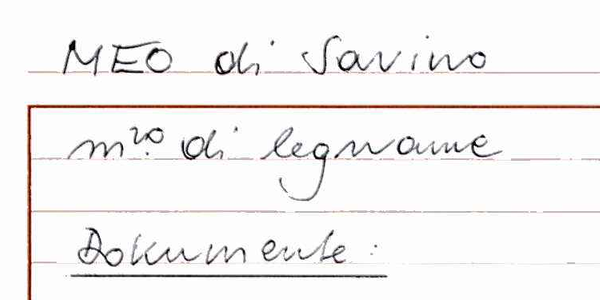 MEO di Savino
m.ro di legname
Dokumente: